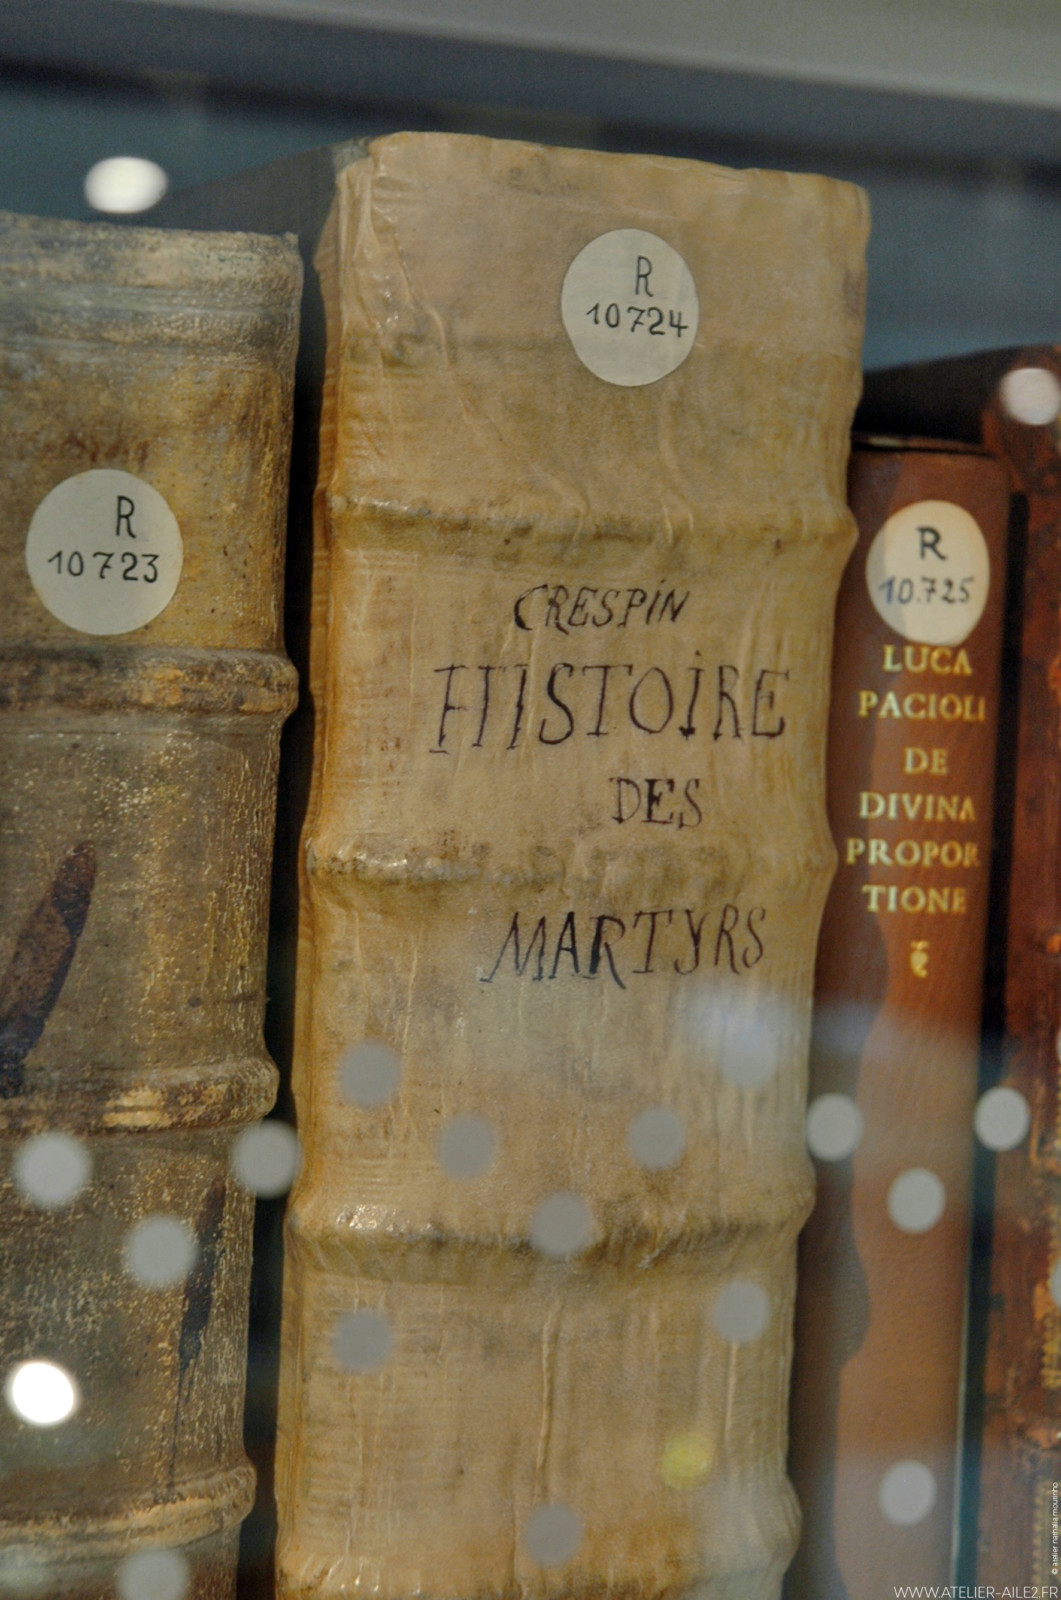 R
10723
R
10724
CRESPIN
HISTOIRE
DES
MARTYRS
R
10.725
LUCA
PACIOLI
DE
DIVINA
PROPOR
TIONE
© atelier nathalia moutinho
WWW.ATELIER-AILE2.FR